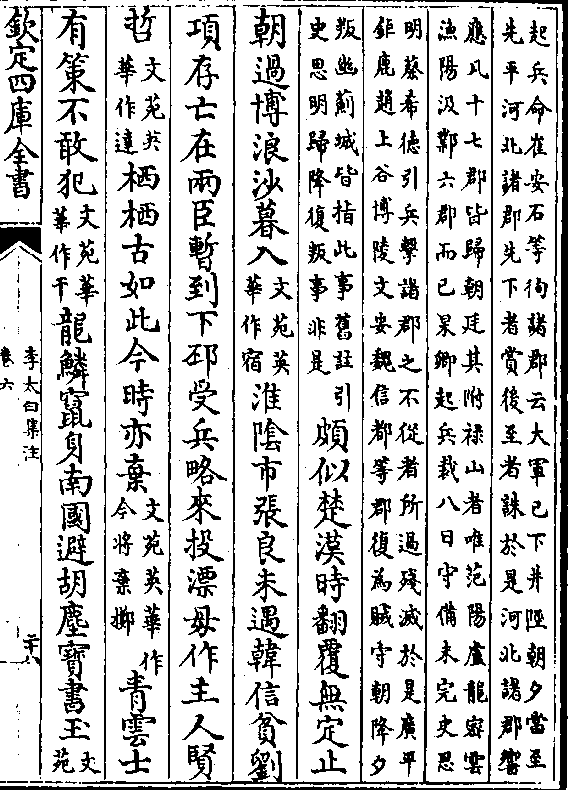 起兵命崔安石等徇諸郡云大軍已下井陘朝夕當至
先平河北諸郡先下者賞後至者誅於是河北諸郡響
應凡十七郡皆歸朝廷其附禄山者唯范陽盧龍密雲
漁陽汲鄴六郡而已杲卿起兵裁八日守備未完史思
明蔡希德引兵擊諸郡之不從者所過殘滅於是廣平
鉅鹿趙上谷博陵文安魏信都等郡復為賊守朝降夕
叛幽薊城皆指此事舊註引
史思明歸降復叛事非是
頗似楚漢時翻覆無定止
朝過博浪沙暮入文苑英華作宿淮陰市張良未遇韓信貧劉
項存亡在兩臣暫到下邳受兵略來投漂母作主人賢
哲文苑英華作達栖栖古如此今時亦棄文苑英華作今將棄擲青雲士
有策不敢犯文苑華華作干龍鱗竄身南國避胡塵寶書玉文苑
欽定四庫全書
李太白集注
卷六
二十八